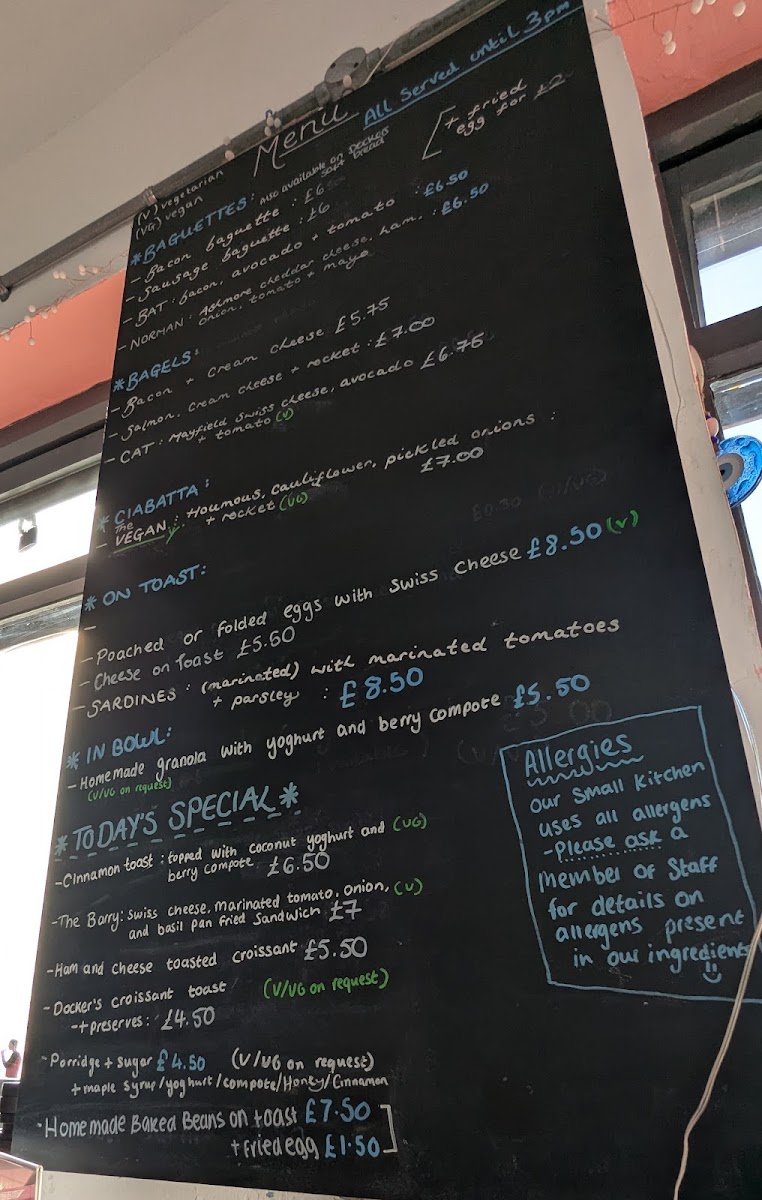 Menu
All Served until 3pm
(V) vegetarian
(VG) vegan
+ fried
egg for £2
*BAGUETTES: also available on DOCKERS
soft bread
- Bacon baguette : £6
- Sausage baguette : £6
- BAT: bacon, avocado + tomato : £6.50
- NORMAN: Ashmore cheddar cheese, ham, : £6.50
onion, tomato + mayo
*BAGELS:
- Bacon + cream cheese £5.75
- Salmon, cream cheese + rocket : £7.00
- CAT: Mayfield Swiss cheese, avocado £6.75
+ tomato (V)
*CIABATTA:
- The VEGAN: Houmous, cauliflower, pickled onions :
+ rocket (VG) £7.00
*ON TOAST:
-
- Poached or folded eggs with Swiss cheese £8.50 (V)
- Cheese on Toast £5.60
- SARDINES: (marinated) with marinated tomatoes
+ parsley : £8.50
*IN BOWL:
- Homemade granola with yoghurt and berry compote £5.50
(V/VG on request)
*TODAY'S SPECIAL*
- Cinnamon toast: topped with coconut yoghurt and (VG)
berry compote £6.50
- The Barry: Swiss cheese, marinated tomato, onion, (V)
and basil pan fried sandwich £7
- Ham and cheese toasted croissant £5.50
- Docker's croissant toast (V/VG on request)
-+ preserves: £4.50
- Porridge + sugar £4.50 (V/VG on request)
+ maple syrup/yoghurt/compote/Honey/Cinnamon
- Homemade Baked Beans on toast £7.50
+ fried egg £1.50
Allergies
Our Small Kitchen
uses all allergens
- Please ask a
member of Staff
for details on
allergens present
in our ingredients